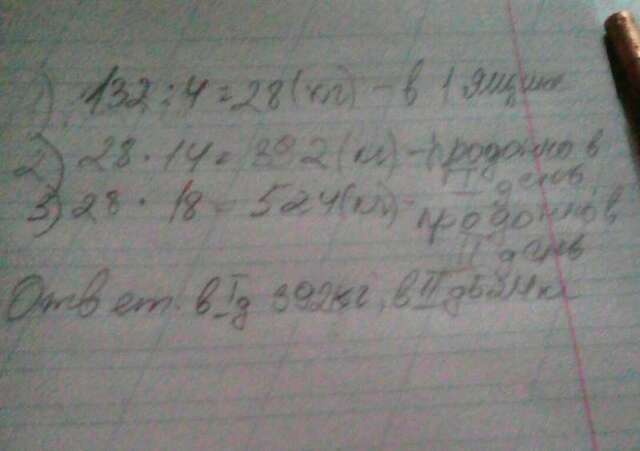 1) 132:4=28(кг)-в 1 ящик
2) 28·14=392(кг)-продано в
I день
3) 28·18=524(кг)-
продано в
II день
Ответ: в I д 392кг, в II д 524 кг